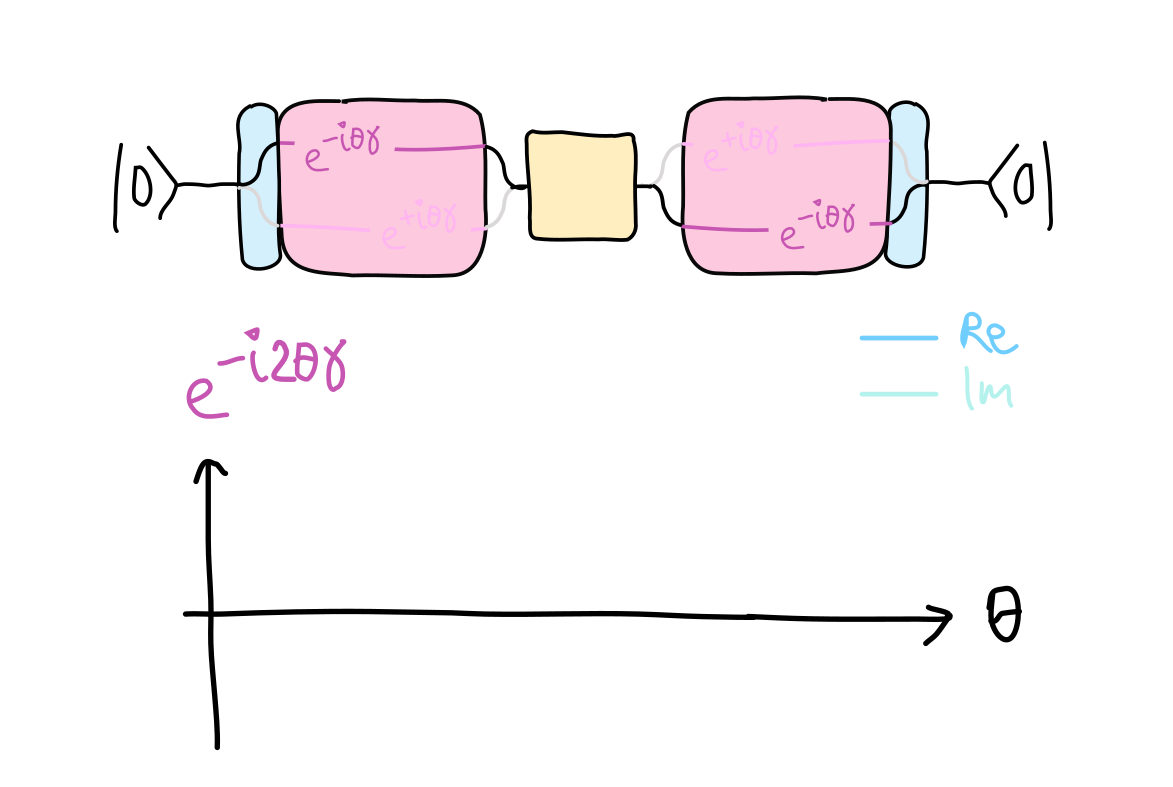 |0⟩ e^{-iθγ} e^{+iθγ} ⟨0|
e^{+iθγ} e^{-iθγ}
e^{-i2θγ} Re
Im
θ